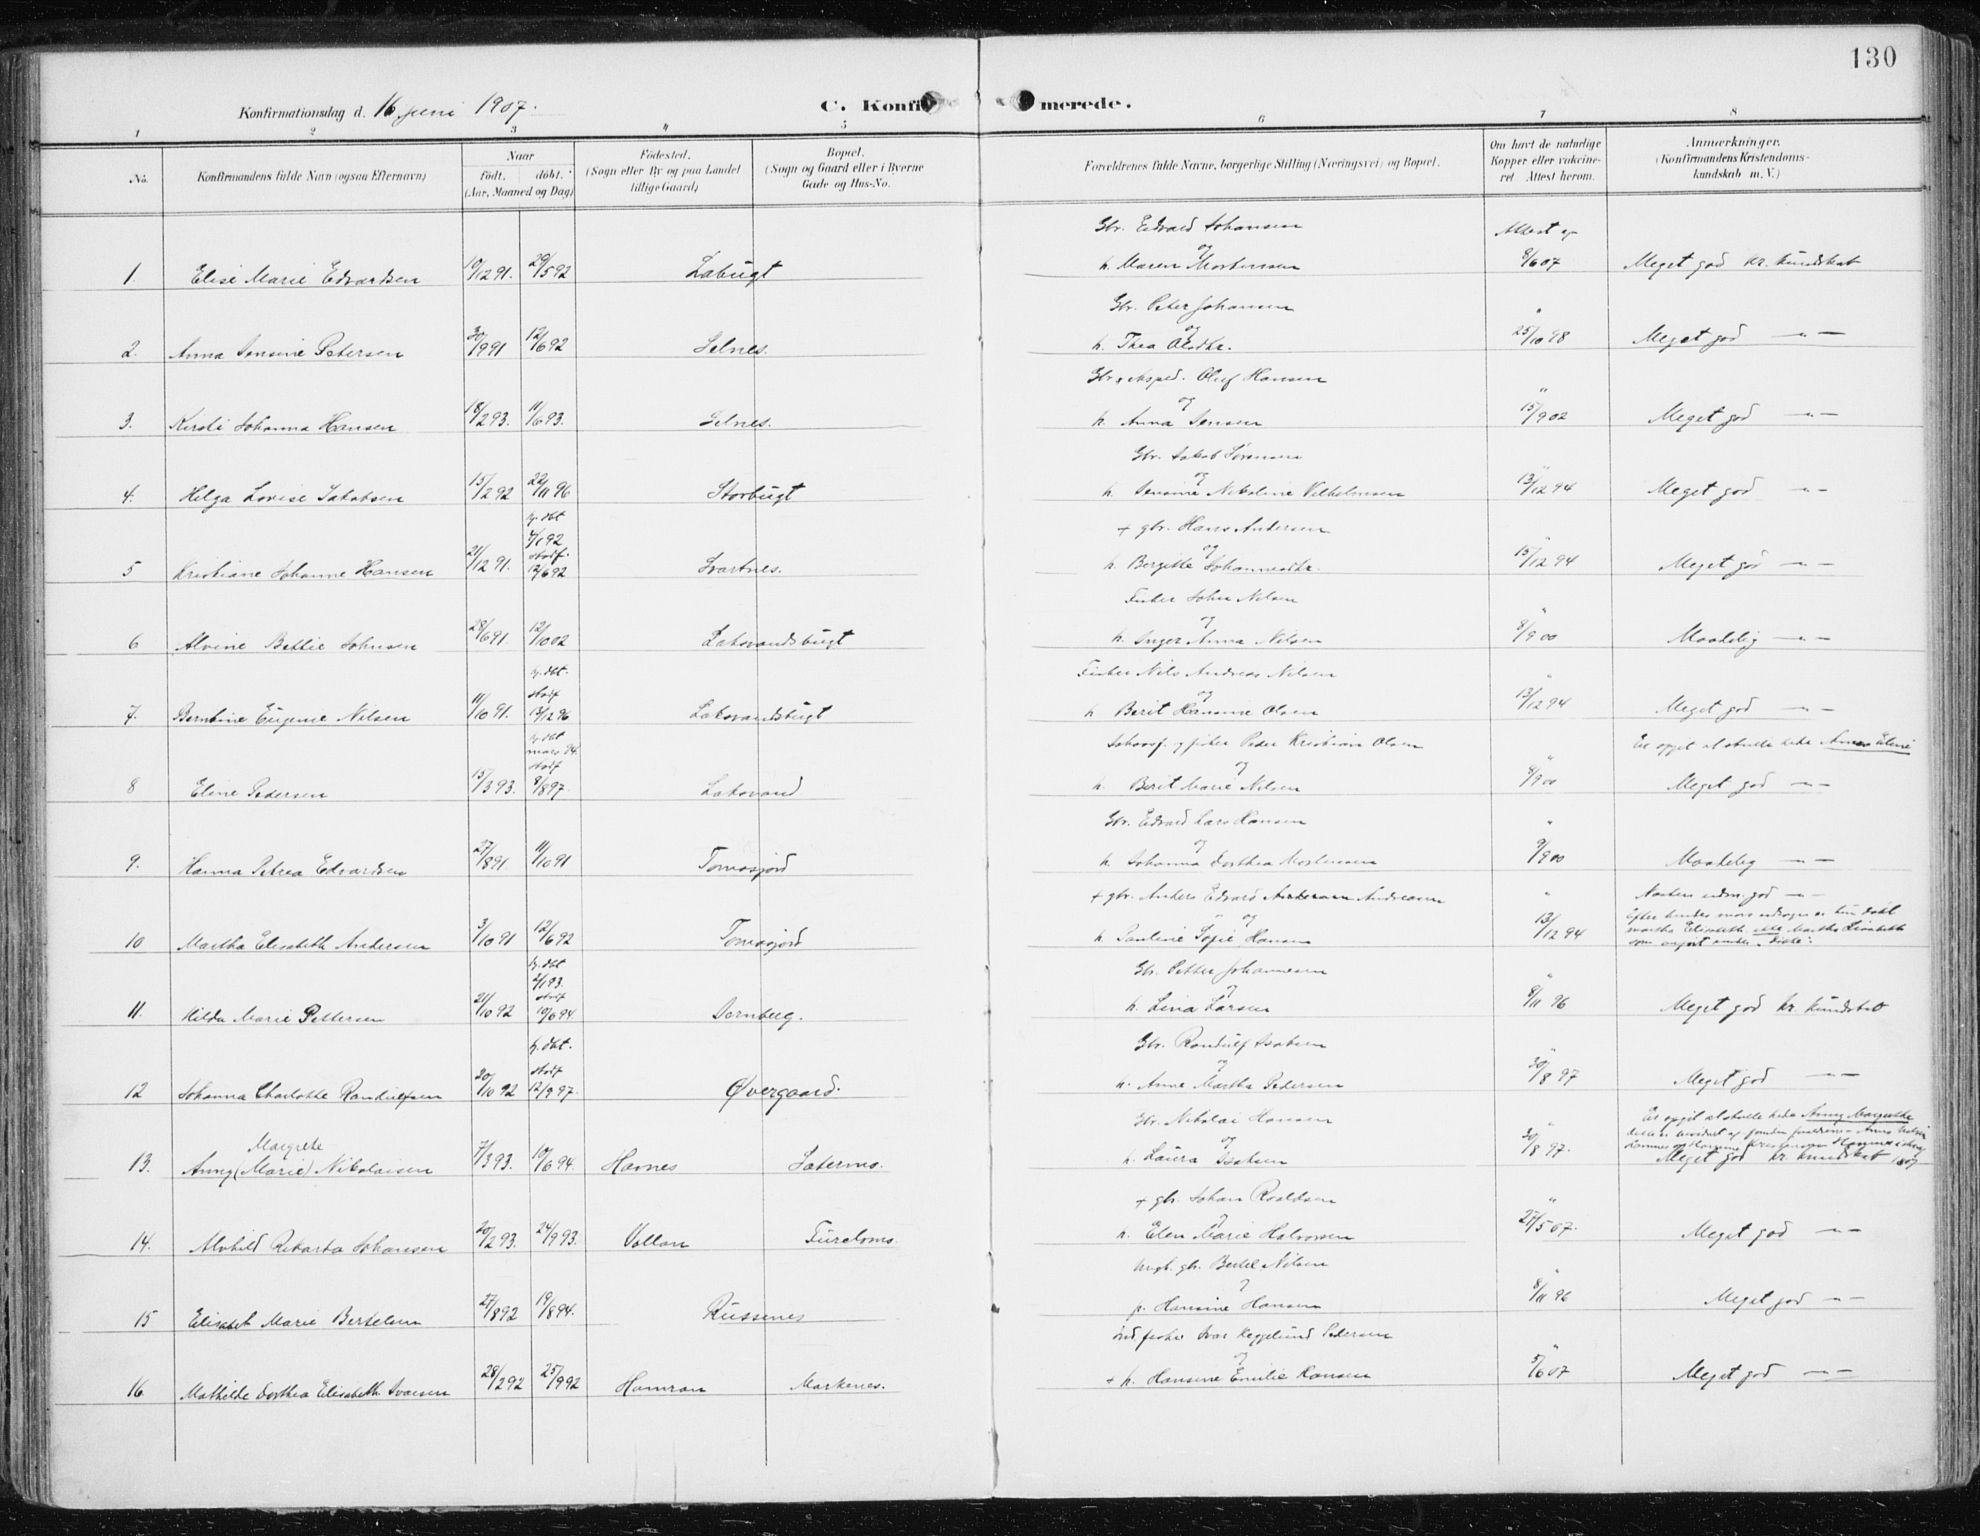 130
Konfirmationsdag d. 16 juni 1907.
C. Konfirmerede.
1 2 3 4 5 6 7 8
No.
Konfirmandens fulde Navn (ogsaa Efternavn)
Naar
født. døbt.
(Aar, Maaned og Dag)
Fødested.
(Sogn eller By og paa Landet
tillige Gaard)
Bopæl.
(Sogn og Gaard eller i Byerne
Gade og Hus-No.
Forældrenes fulde Navne, borgerlige Stilling (Næringsvei) og Bopæl.
Om havt de naturlige
Kopper eller vakcine-
ret Attest herom.
Anmærkninger.
(Konfirmandens Kristendoms-
kundskab m. V.)
Gbr. Edvard Johansen
og
Attest af
1. Elise Marie Edvardsen 19/12 91. 29/5 92 Labugt h. Maren Mortensen 8/6 07 Meget god kr. kundskab
Gbr. Peter Johansen
og
2. Anna Jensine Petersen 30/9 91 12/6 92 Selnes. h. Thea Olsdtr. 25/10 98 Meget god —"—
Oluf Hansen
og
3. Kirsti Johanna Hansen 18/2 93. 11/6 93. Selnes. h. Anna Jensen 15/9 02 Meget god —"—
Gbr. Jakob Sørensen
og
4. Helga Lovise Jakobsen 15/2 92 22/11 96 Storbugt h. Jensine Nikoline Vilhelmsen 13/12 94 Meget god —"—
hj. dbt
7/1 92
stadf.
+ gbr. Hans Andersen
og
5 Kristiane Johanne Hansen 21/12 91. 12/6 92 Svartnes. h. Bergitte Johannesdtr. 15/12 94 Meget god —"—
Fisker John Nilsen
og
6 Alvine Bettie Johnsen 28/6 91. 12/10 02 Laksvandsbugt h. Inger Anna Nilsen 8/9 00 Maadelig —"—
hj. dbt.
stadf
Fisker Nils Andreas Nilsen
og
7. Berntine Eugenie Nilsen 11/10 91. 13/12 96 Laksvandsbugt h Berit Hansine Olsen 13/12 94 Meget god —"—
hj. dbt
mars 94.
stadf
fisker Peder Kristian Olsen
og
Er opgit at skulle hete Anna Eline
8 Eline Pedersen 15/3 93. 8/8 97. Laksvand h. Berit Marie Nilsen 8/9 00 Meget god —"—
Gbr. Edvard Lars Hansen
og
9. Hanna Petrea Edvardsen 27/8 91. 11/10 91 Tomasjord h. Johanna Dorthea Mortensen 9/9 00 Maadelig —"—
+ gbr. Anders Edvard Andreasen
og
Næsten udm. god —"—
10 Martha Elisabeth Andersen 3/10 91 12/6 92 Tomasjord h. Pauline Sofie Hansen 13/12 94
Efter hendes mors udsagn er hun døbt
Martha Elisabeth ikke Martha Lisabeth
som anført under
hj. dbt
2/1 93.
stadf
Gbr. Petter Johannesen
og
11. Hilda Marie Pettersen 21/10 92 10/6 94 Sørnberg. h. Lina Larsen 8/11 96 Meget god kr. kundskab
hj. dbt.
stadf
Gbr. Randulf Isaksen
og
12 Johanna Charlotte Randulfsen 20/10 92 12/9 97. Øvergaard. h. Anne Martha Pedersen 30/8 97 Meget god —"—
Margrete
Gbr. Nikolai Hansen
og
Er opgit at skulle hete Anny Margrethe
13. Anny (Marie) Nikolaisen 7/3 93. 10/6 94. Havnes Sæternes. h. Laura Isaksen 30/8 97. Meget god kr. kundskab
+ gbr. Johan Roaldsen
og
14. Alvhild Rikarda Johansen 20/2 93. 24/9 93. Vollan h. Elen Marie Halvorsen 27/5 07. Meget god —"—
gbr. Bertel Nilsen
og
15 Elisabet Marie Bertelsen 27/8 92 19/8 94. Russenes p. Hansine Hansen 8/11 96 Meget god —"—
Ivar Keggelund Pedersen
og
16 Mathilde Dorthea Elisabeth Ivarsen 28/2 92 25/9 92 Hamran Markenes. + h. Hansine Emilie Hansen 5/6 07 Meget god —"—